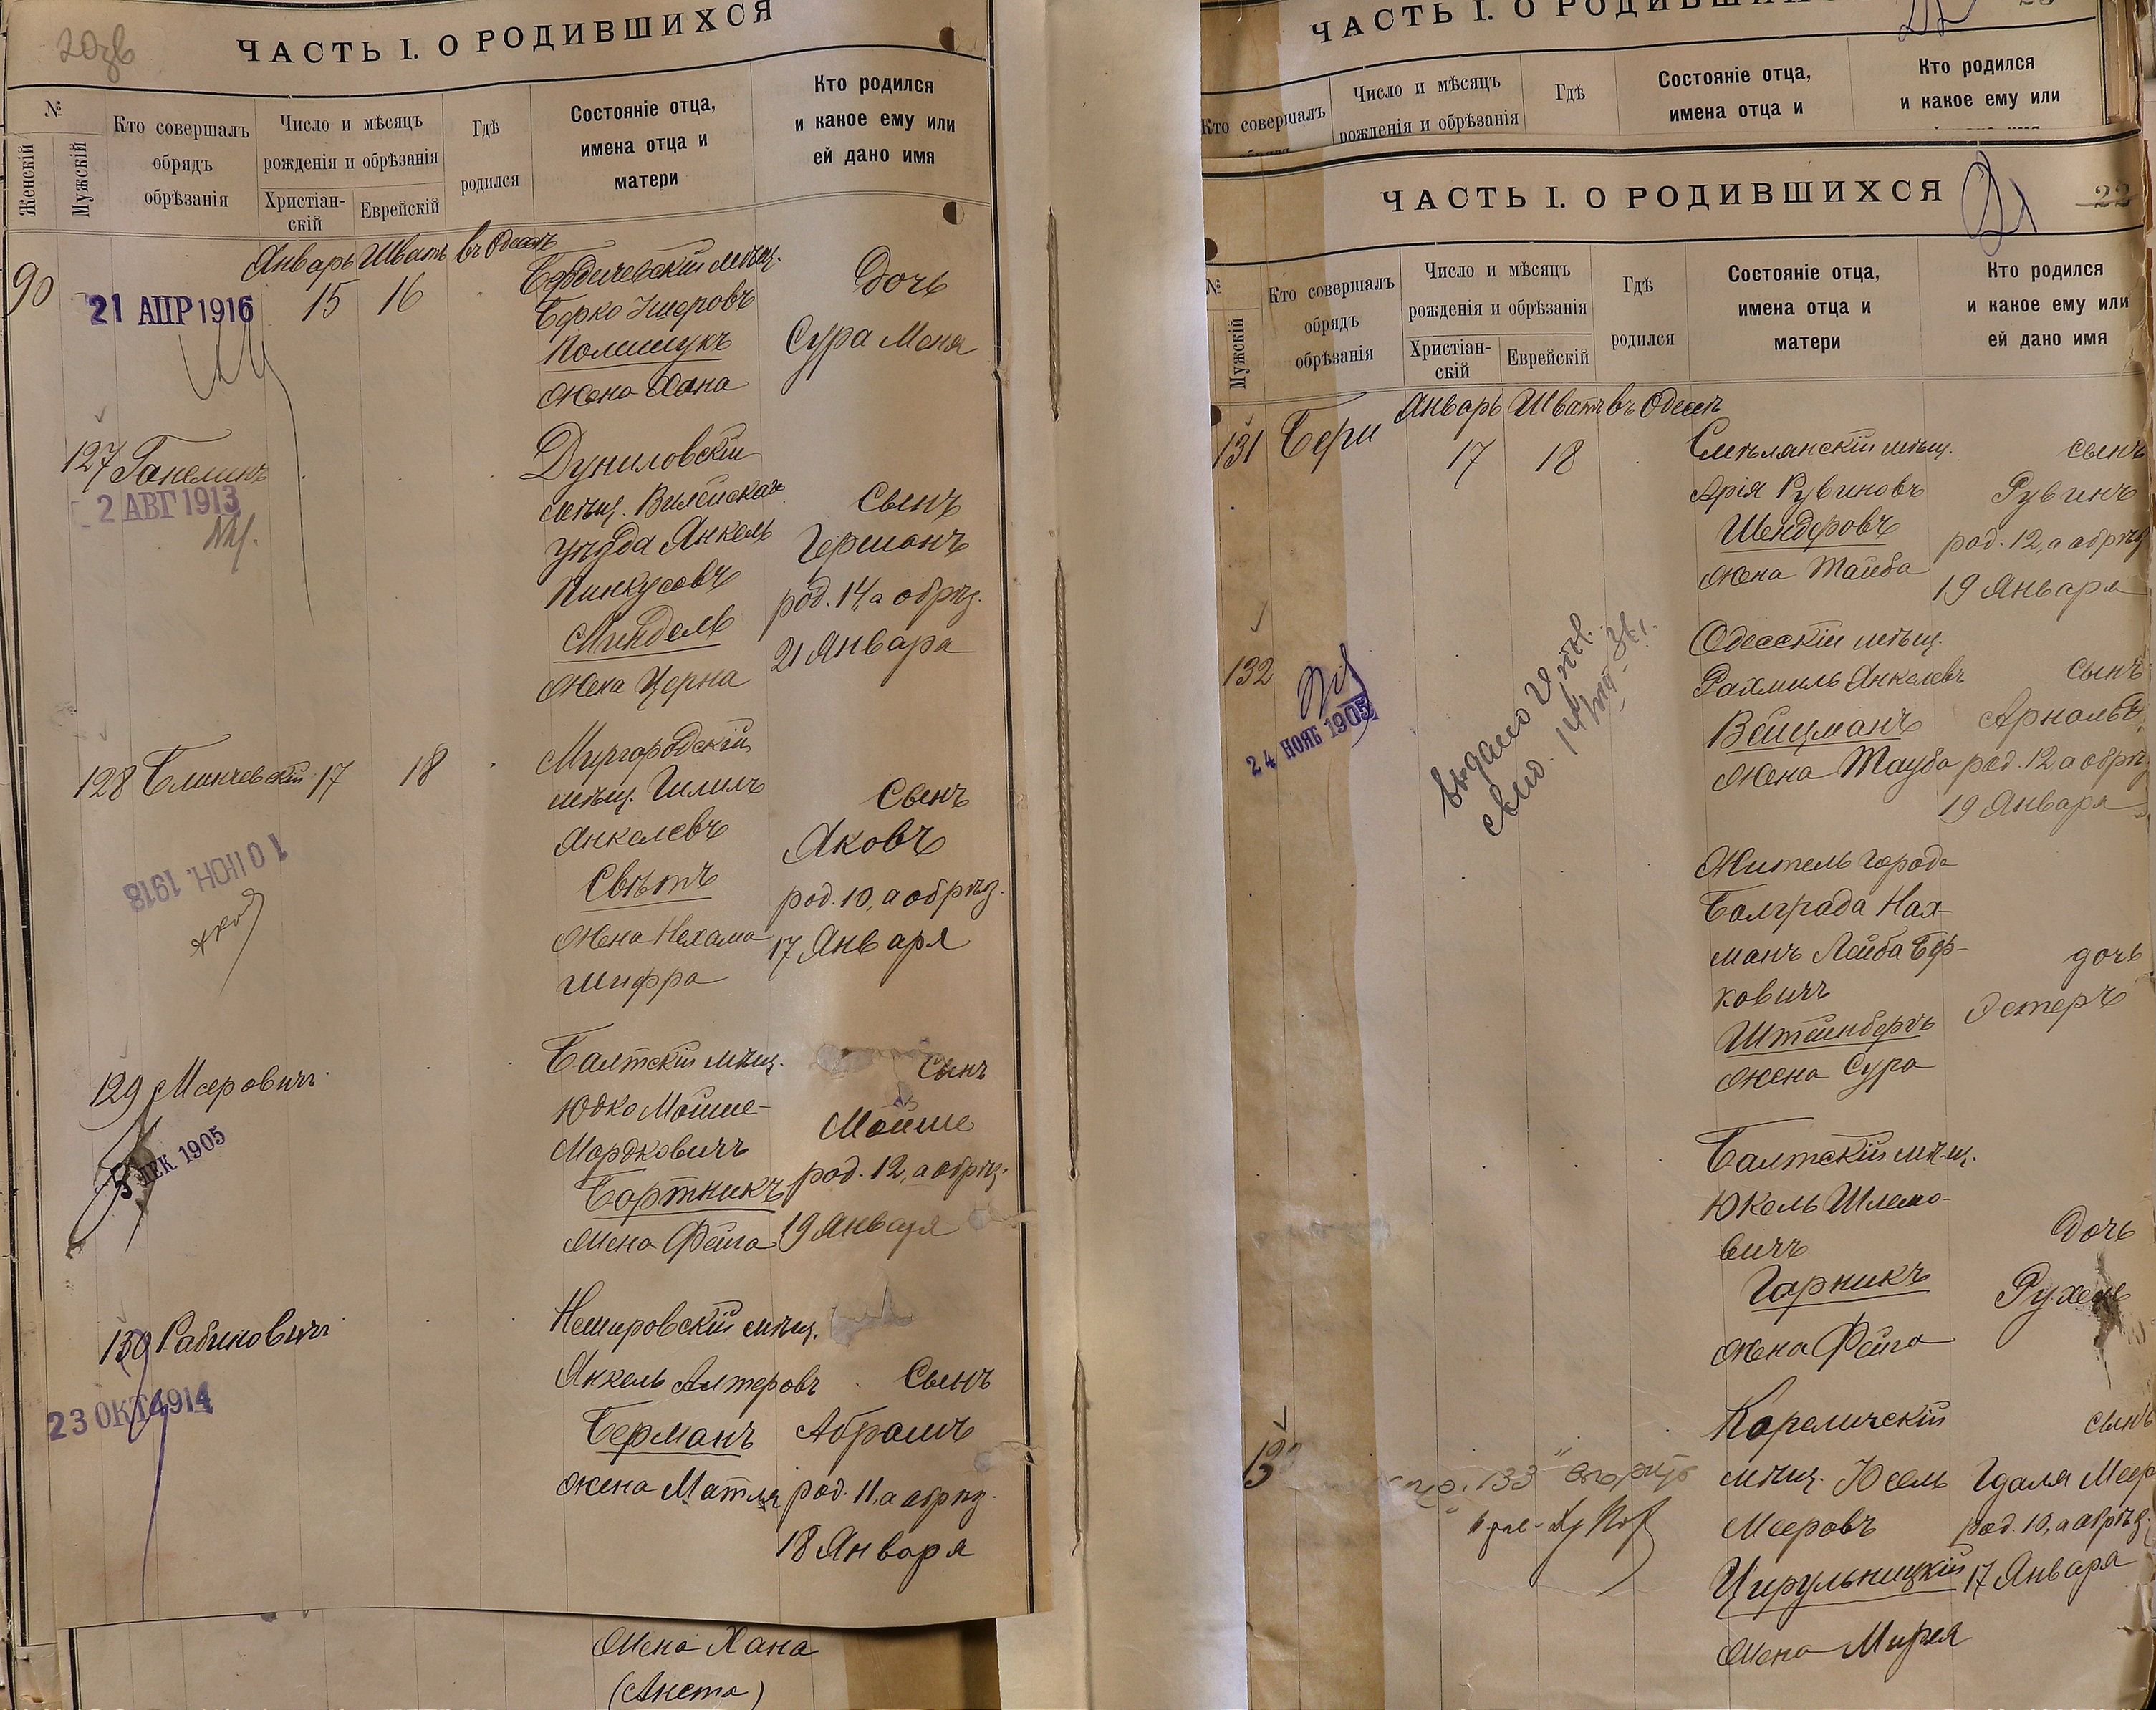 ЧАСТЬ I. О РОДИВШИХСЯ
№
Женскій
Мужскій
Кто совершалъ
обрядъ
обрѣзанія
Число и мѣсяцъ
рожденія и обрѣзанія
Христіан-
скій
Еврейскій
Гдѣ
родился
Состояніе отца,
имена отца и
матери
Кто родился
и какое ему или
ей дано имя
Январь Шватъ въ Одессѣ
90
21 АПР 1916
15
16
Бердичевскій мѣщ.
Берко Ушеровъ
Полищукъ
Жена Хана
Дочь
Сура Меня
127 Ганелинъ
2 АВГ 1913
Дуниловскій
мѣщ. Вилейскаго
уѣзда Янкель
Пинкусовъ
Миндель
Жена Церна
Сынъ
Гершонъ
род. 14, а обрѣз.
21 Января
128
17
18
Миргородскій
мѣщ. Гилилъ
Янкелевъ
Свѣтъ
Жена Нехама
Шифра
Сынъ
Яковъ
род. 10, а обрѣз.
17 Января
10 ІЮН. 1918
129 Мееровичъ
5 ДЕК 1905
Балтскій мѣщ.
Юдко Мойше-
Мордковичъ
Бортникъ
Жена Фейга
Сынъ
Мойше
род. 12, а обрѣз.
19 Января
130 Рабиновичъ
23 ОКТ 1914
Немировскій мѣщ.
Янкель Алтеровъ
Берманъ
Жена Матля
Сынъ
Абрамъ
род. 11, а обрѣз.
18 Января
Жена Хана
(Анета)
ЧАСТЬ I. О РОДИВШИХСЯ
Кто совершалъ
Число и мѣсяцъ
рожденія и обрѣзанія
Гдѣ
Состояніе отца,
имена отца и
Кто родился
и какое ему или
ЧАСТЬ I. О РОДИВШИХСЯ
21
22
№
Мужскій
Кто совершалъ
обрядъ
обрѣзанія
Число и мѣсяцъ
рожденія и обрѣзанія
Христіан-
скій
Еврейскій
Гдѣ
родился
Состояніе отца,
имена отца и
матери
Кто родился
и какое ему или
ей дано имя
Январь Шватъ въ Одессѣ
131 Бери
17
18
Смѣлянскій мѣщ.
Арія Рувиновъ
Шендеровъ
Жена Тайба
сынъ
Рувинъ
род. 12, а обрѣз
19 Января
132
24 НОЯБ 1905
выдано
Одесскій мѣщ.
Рахмиль Янкелевъ
Вейцманъ
Жена Тауба
сынъ
Арнольдъ
род. 12 а обрѣз
19 Января
Житель города
Болграда Нах-
манъ Лейба Бер-
ковичъ
Штейнбергъ
Жена Сура
дочь
Эстеръ
Балтскій мѣщ.
Юкель Шлемо-
вичъ
Гарникъ
Жена Фейга
Дочь
Рухель
133
133
Кореличскій
мѣщ. Юсель
Мееровъ
Цирульницкій
Жена Мирея
сынъ
Гдаля Меер
род. 10, а обрѣз.
17 Января